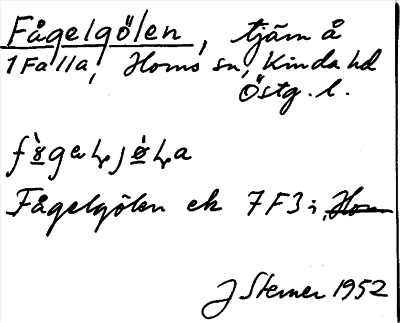 Fågelgölen, tjärn å
1 Falla, Horns sn, Kinda hd
Östg. l.
Fågelgölen ek 7F3i
J Sterner 1952